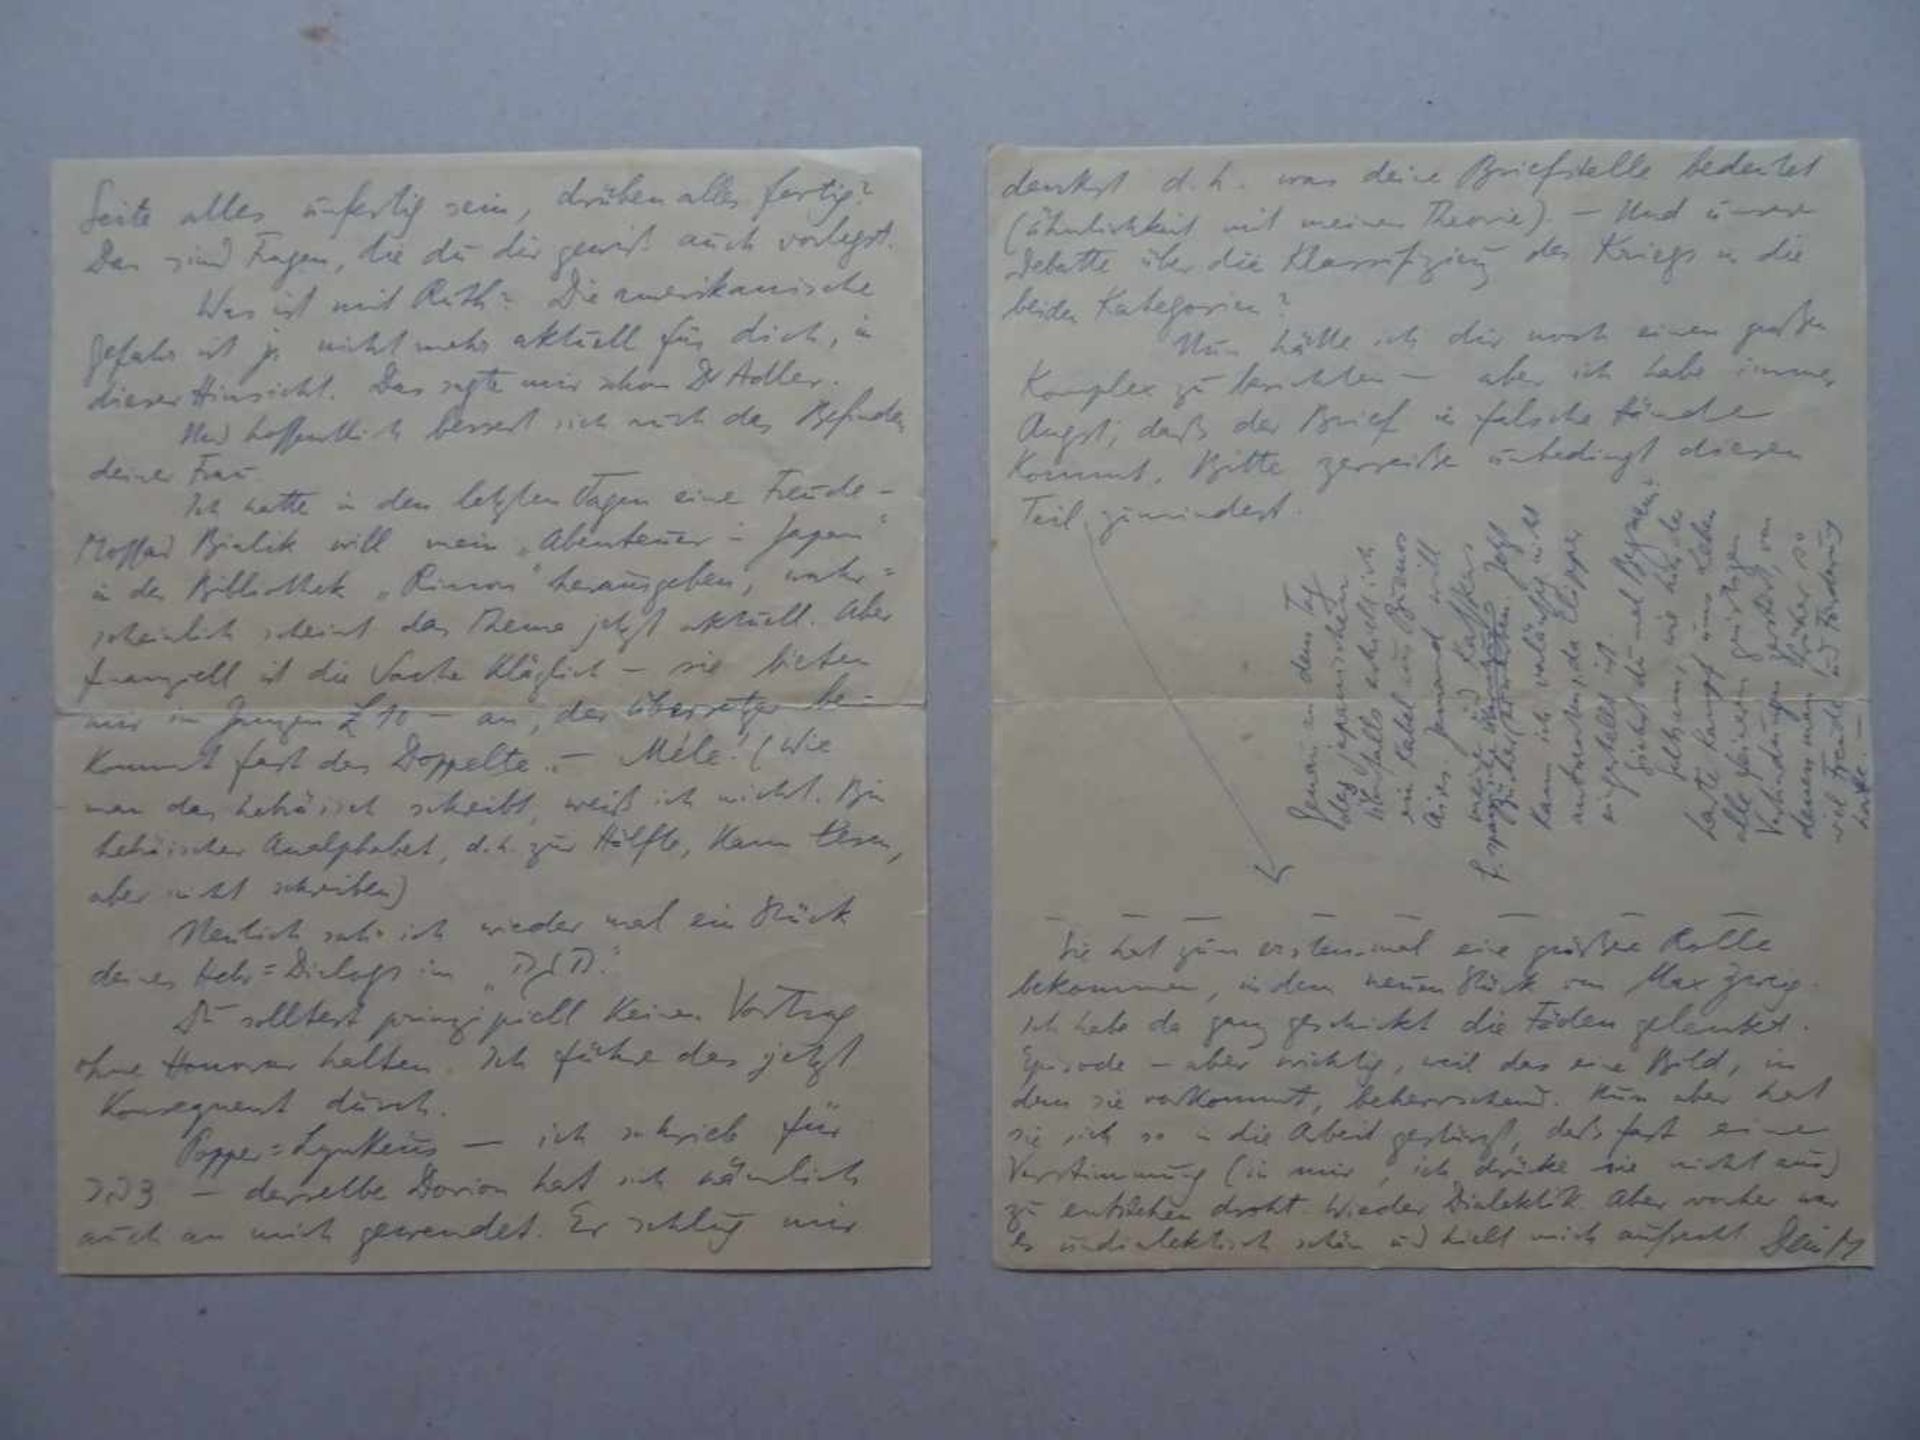 Seite alles unfertig sein, drüben alles fertig?
Das sind Fragen, die du dir gewiß auch vorlegst.
Was ist mit Ruth? Die amerikanische
Gefahr ist ja nicht mehr aktuell für dich, in
dieser Hinsicht. Das sagte mir schon Dr Adler.
Und hoffentlich bessert sich auch das Befinden
deiner Frau.
Ich hatte in den letzten Tagen eine Freude –
Mossad Bialik will mein „Abenteuer in Japan"
in der Bibliothek „Rimon" herausgeben, wahr=
scheinlich scheint das Thema jetzt aktuell. Aber
finanziell ist die Sache kläglich – sie bieten
mir im Ganzen £ 10 – an, der Übersetzer be–
kommt fast das Doppelte. – Méle! (Wie
man das hebräisch schreibt, weiß ich nicht. Bin
hebräischer Analphabet, d.h. zur Hälfte, kann lesen,
aber nicht schreiben)
Neulich sah ich wieder mal ein Stück
deines Hebr=Dialogs im
Du solltest prinzipiell keinen Vortrag
ohne Honorar halten. Ich führe das jetzt
konsequent durch.
Popper=Lynkeus — ich schrieb für
– derselbe Dorion hat sich nämlich
auch an mich gewendet. Er schlug mir
denkst d.h. was deine Briefstelle bedeutet
(Ähnlichkeit mit meiner Theorie). – Und unsere
Debatte über die Klassifizierung des Kriegs in die
beiden Kategorien?
Nun hätte ich dir noch einen großen
Komplex zu berichten – aber ich habe immer
Angst, daß der Brief in falsche Hände
kommt. Bitte zerreiße unbedingt diesen
Teil zumindest.
Genau an dem Tag
des japanischen
Überfalls erhielt ich
ein Kabel aus Buenos
Aires. Jemand will
meine und Kafkas
Bücher f. spanische drucken. Jetzt
kann ich vorläufig nicht
antworten, da Clipper
eingestellt ist.
Siehst du mal Bergmann?
Seltsam, wie hier der
harte Kampf ums Leben
alle feineren geistigen
Verbindungen zerstört, von
denen man früher so
viel Freude und Förderung
hatte. –
Sie hat zum erstenmal eine größere Rolle
bekommen, in dem neuen Stück von Max Zweig.
Ich habe da ganz geschickt die Fäden gelenkt.
Episode – aber wichtig, weil das eine Bild, in
dem sie vorkommt, beherrschend. Nun aber hat
sie sich so in die Arbeit gestürzt, daß fast eine
Verstimmung (in mir, ich drücke sie nicht aus)
zu entstehen droht. Wieder Dialektik. Aber vorher war
es undialektisch schön und hielt mich aufrecht Dein M